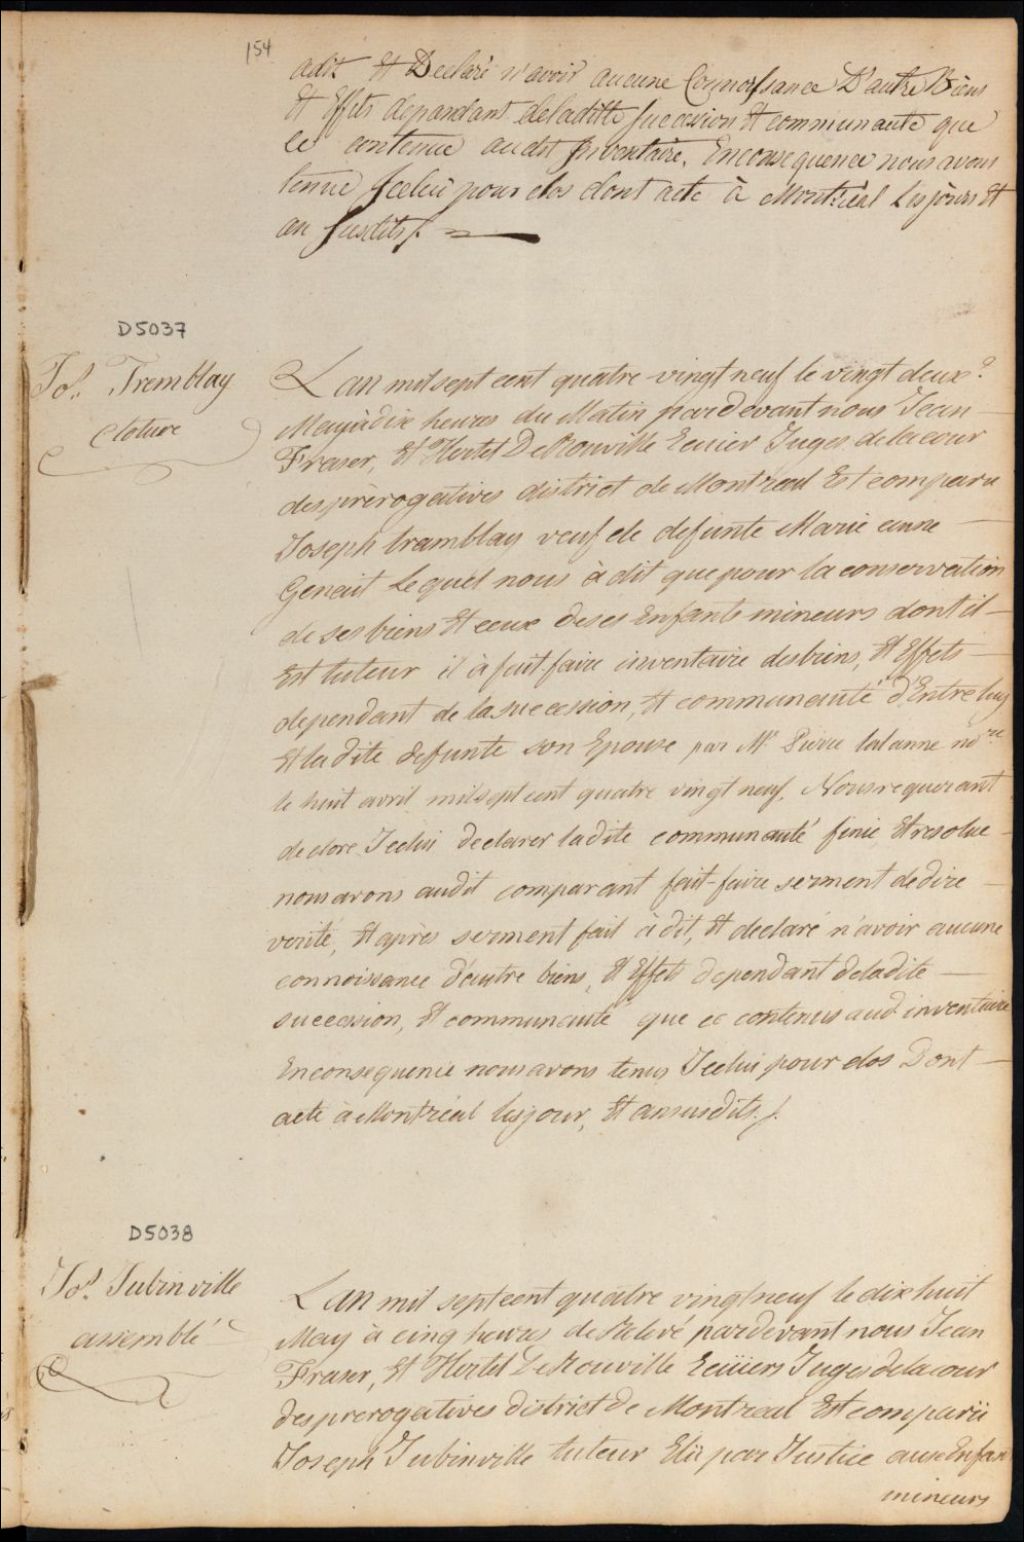 154
adit et Declaré n'avoir aucune Connoissance D'autre Biens
Et Effets dependant deladitte Succession Et communauté que
ce contenue audit Inventaire. Enconsequence nous avons
tenue Jcelui pour clos dont acte à Montréal Lesjours Et
an Susdits /.
D5037
Jos. Tremblay
Cloture
Lan mil sept cent quatre vingt neuf le vingt deux
May à dix heures du Matin pardevant nous Jean
Fraser, Et Hertel DeRouville Ecuier Juges delacour
des prérogatives district de Montréal Est comparu
Joseph tramblay veuf de defunte Marie anne
Lequel nous à dit que pour la conservation
de ses biens Et ceux deses Enfants mineurs dont il
Est tuteur il à fait faire inventaire desbiens, Et Effets
dependant de la succession, Et communauté d'Entre luy
Et ladite defunte son Epouse par Mr Pierre lalanne nore
le huit avril mil sept cent quatre vingt neuf. Nous requerant
de clore Jcelui declarer ladite communauté finie Et resolue
nous avons audit comparant fait faire serment dedire
verité, Et après serment fait à dit, Et declaré n'avoir aucune
connoissance d'autre biens, Et Effets dependant deladite
succession, Et communauté que ce contenus aud. inventaire
Enconsequence nous avons tenus Jcelui pour clos Dont
acte à Montréal lesjour, Et an susdits /.
D5038
Jos. Jubinville
assemblé
Lan mil septcent quatre vingt neuf le dix huit
May à cinq heures deRelevé pardevant nous Jean
Fraser, Et Hertel DeRouville Ecüiers Juges delacour
des prerogatives district de Montreal Est comparü
Joseph Jubinville tuteur Elü par Justice aux Enfan
mineurs